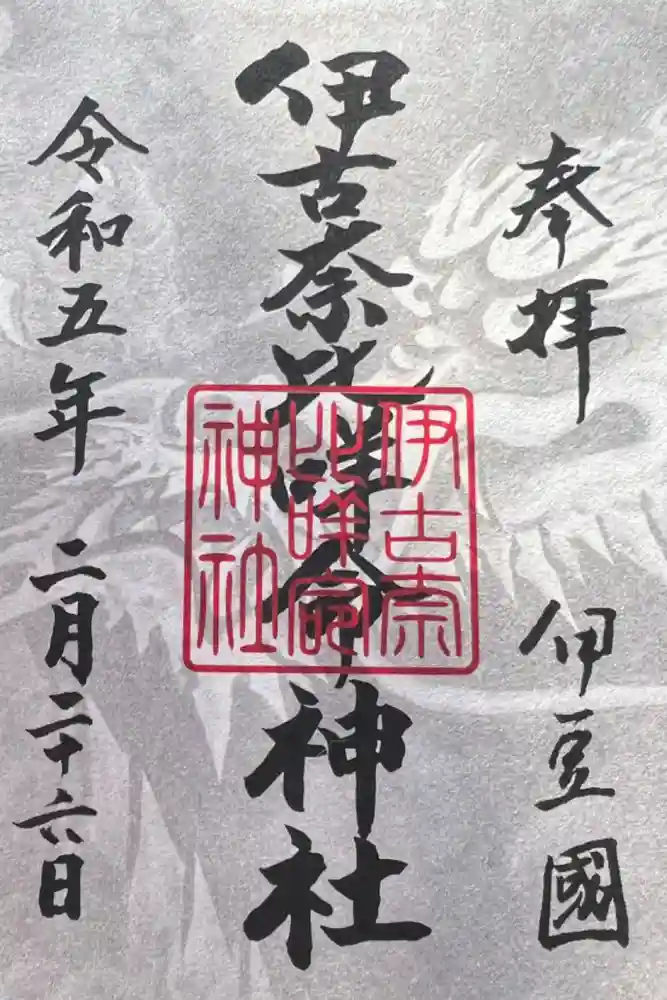 奉拝
伊豆國
伊古奈比咩命神社
伊古奈
比咩命
神社
令和五年
二月二十六日